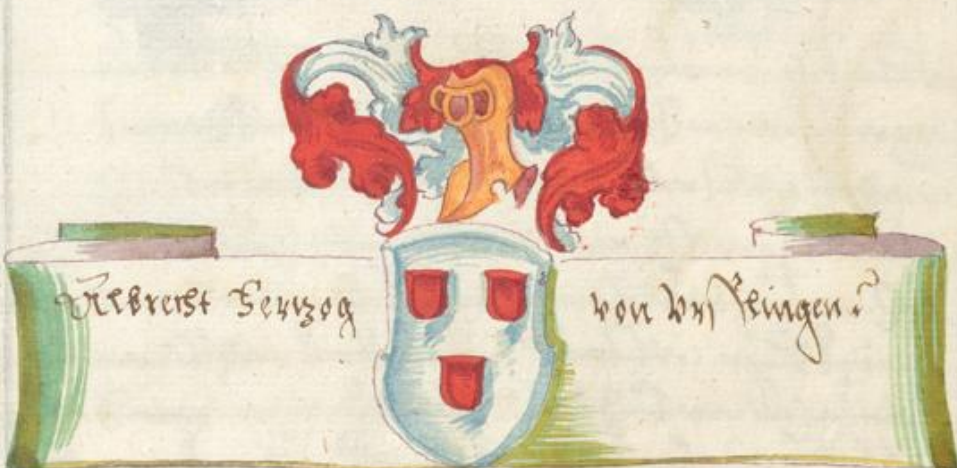 Albrecht Hertzog von Urslingen.